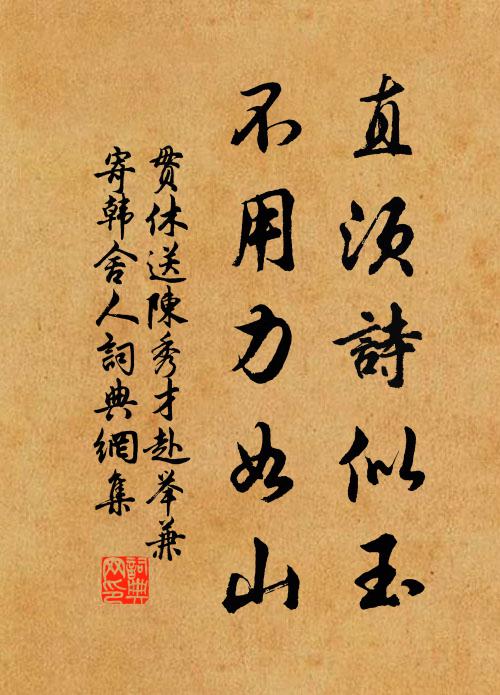 直須詩似玉
不用力如山
贯休送陳秀才赴举兼
寄韩舍人詞典網集
詞典
网印